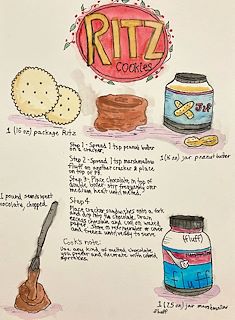 RITZ
COOKIES
Jif
1 (16 oz) package Ritz
1 (16 oz) jar peanut butter
Step 1 - Spread 1 tsp peanut butter
on a cracker.
Step 2 - Spread 1 tsp marshmallow
fluff on another cracker & place
on top of PB.
Step 3 - Place chocolate in top of
double boiler, stir frequently over
medium heat until melted.
1 pound semisweet
chocolate, chopped
Step 4
Place cracker sandwiches onto a fork
and dip into the chocolate. Drain
excess chocolate and set on waxed
paper. Store in refrigerator or cover
and freeze until ready to serve.
Cook's note:
Use any kind of melted chocolate
you prefer and decorate with colored
sprinkles.
(fluff)
fluff
1 (7.5 oz) jar marshmallow
fluff